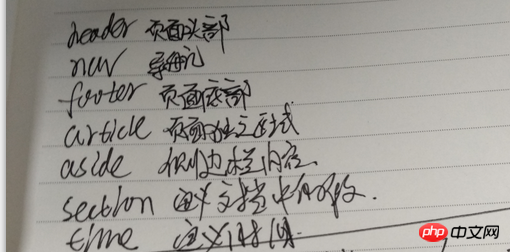 header 页面头部
nav 导航
footer 页面底部
article 页面独立正式
aside 侧边栏内容
section 定义文档中的段
time 定义时间
php 中文网